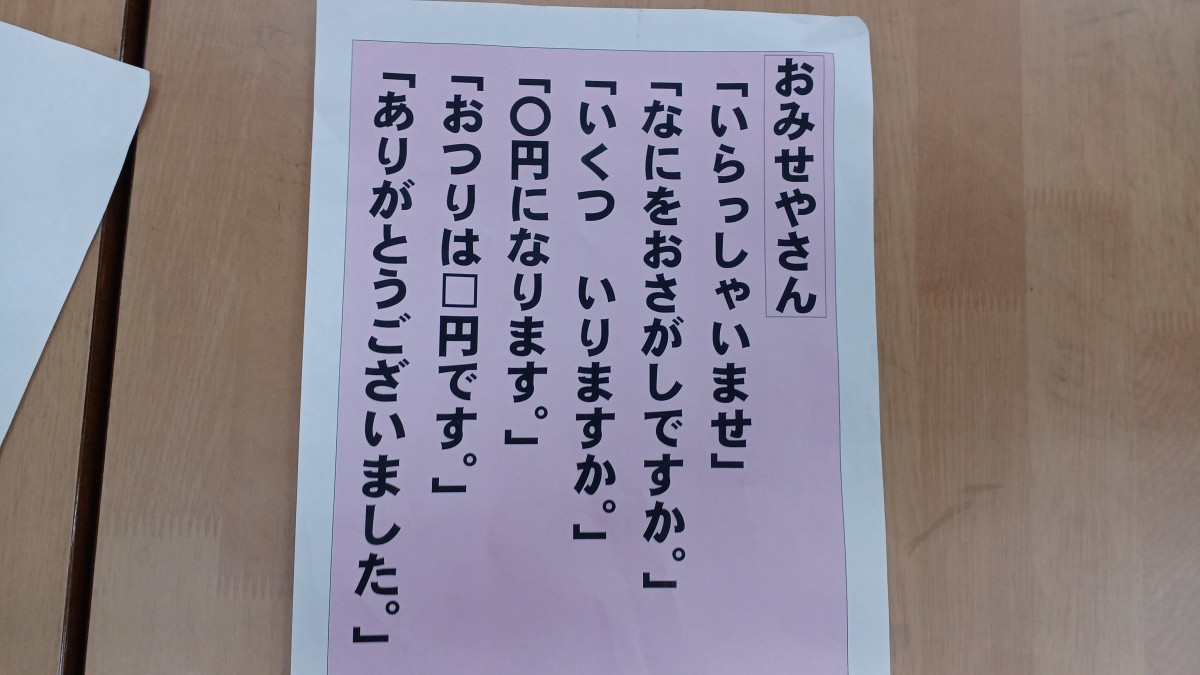 おみせやさん
「いらっしゃいませ」
「なにをおさがしですか。」
「いくつ　いりますか。」
「〇円になります。」
「おつりは□円です。」
「ありがとうございました。」